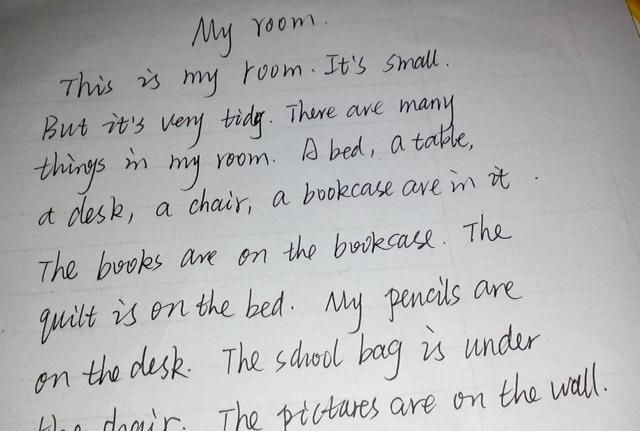 My room.
This is my room. It's small.
But it's very tidy. There are many
things in my room. A bed, a table,
a desk, a chair, a bookcase are in it.
The books are on the bookcase. The
quilt is on the bed. My pencils are
on the desk. The school bag is under
the chair. The pictures are on the wall.